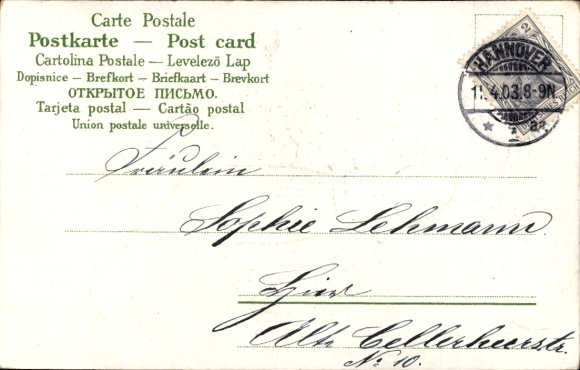 Carte Postale
Postkarte — Post card
Cartolina Postale — Levelező Lap
Dopisnice — Brefkort — Briefkaart — Brevkort
ОТКРЫТОЕ ПИСЬМО.
Tarjeta postal — Cartão postal
Union postale universelle.
2
HANNOVER
4.03.8-9N
* 1 a.
Fräulein
Sophie Lehmann.
Hier
Alte Cellerheerstr.
No 10.